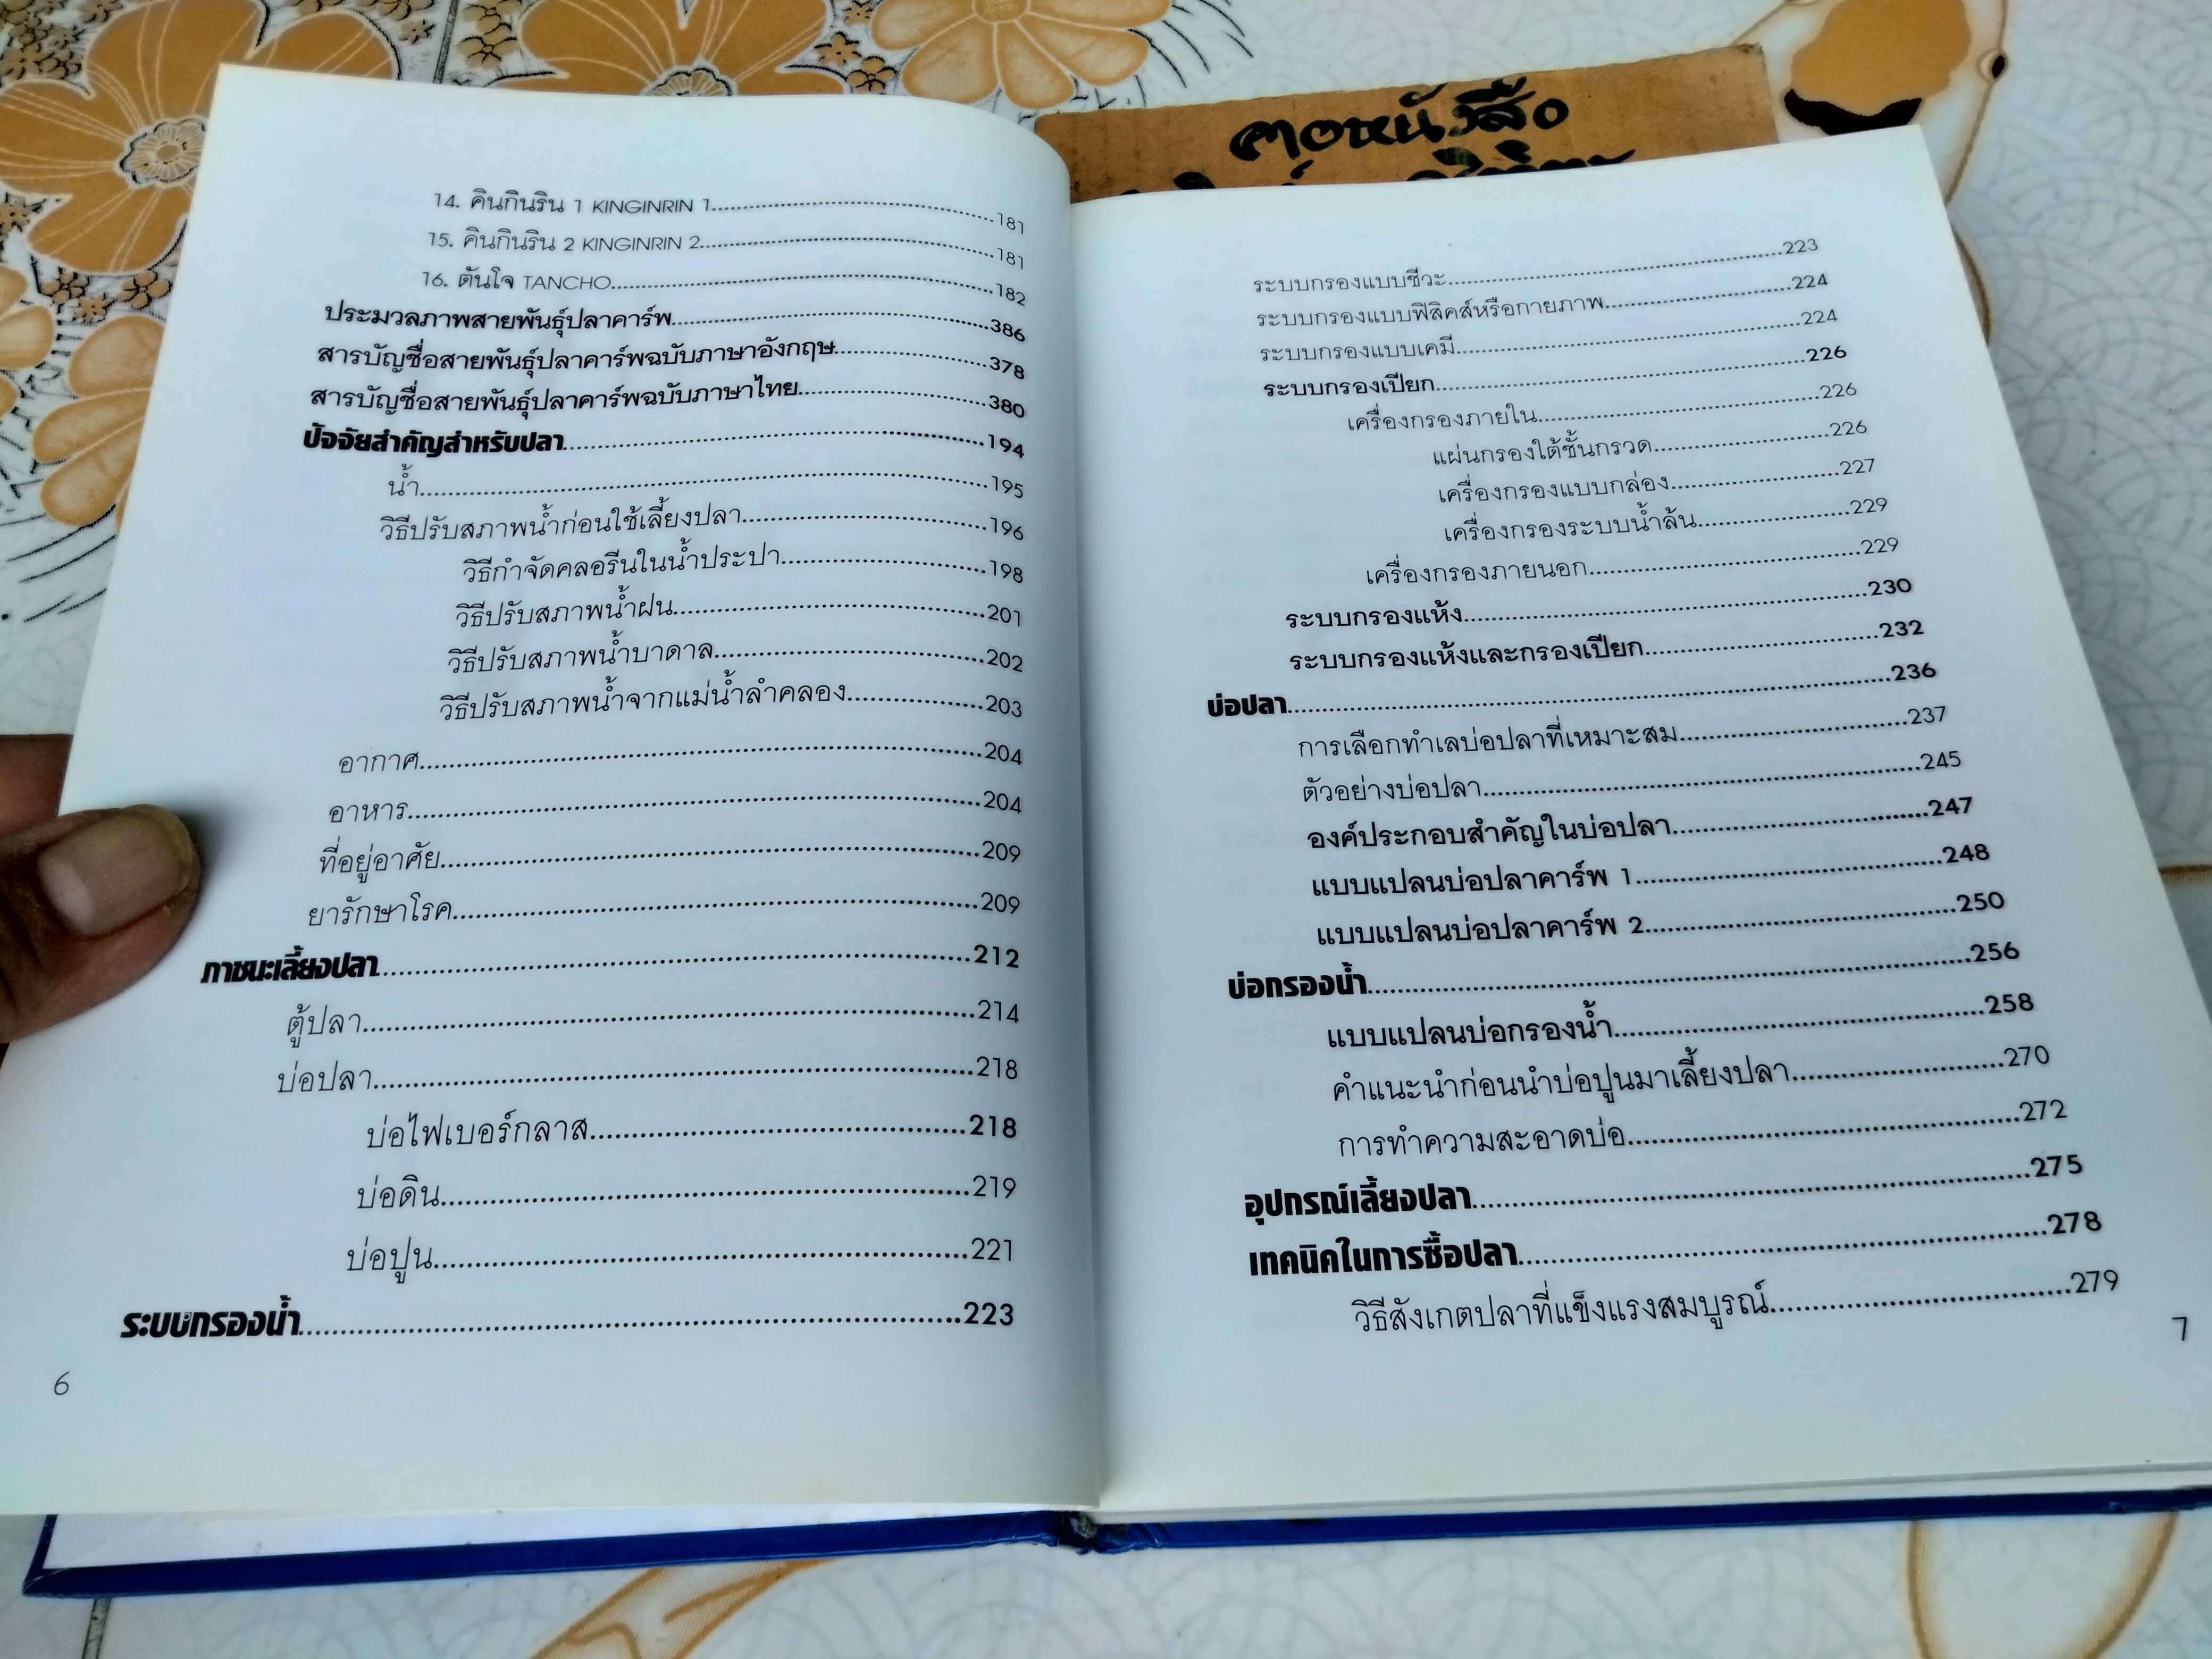 คาดหนังสือ
14. คินกินริน 1 KINGINRIN 1..........181
15. คินกินริน 2 KINGINRIN 2..........181
16. ตันโจ TANCHO..........182
ประมวลภาพสายพันธุ์ปลาคาร์พ..........386
สารบัญชื่อสายพันธุ์ปลาคาร์พฉบับภาษาอังกฤษ..........378
สารบัญชื่อสายพันธุ์ปลาคาร์พฉบับภาษาไทย..........380
ปัจจัยสำคัญสำหรับปลา..........194
น้ำ..........195
วิธีปรับสภาพน้ำก่อนใช้เลี้ยงปลา..........196
วิธีกำจัดคลอรีนในน้ำประปา..........198
วิธีปรับสภาพน้ำฝน..........201
วิธีปรับสภาพน้ำบาดาล..........202
วิธีปรับสภาพน้ำจากแม่น้ำลำคลอง..........203
อากาศ..........204
อาหาร..........204
ที่อยู่อาศัย..........209
ยารักษาโรค..........209
ภาชนะเลี้ยงปลา..........212
ตู้ปลา..........214
บ่อปลา..........218
บ่อไฟเบอร์กลาส..........218
บ่อดิน..........219
บ่อปูน..........221
ระบบกรองน้ำ..........223
6
ระบบกรองแบบชีวะ..........223
ระบบกรองแบบฟิสิคส์หรือกายภาพ..........224
ระบบกรองแบบเคมี..........224
ระบบกรองเปียก..........226
เครื่องกรองภายใน..........226
แผ่นกรองใต้ชั้นกรวด..........226
เครื่องกรองแบบกล่อง..........227
เครื่องกรองระบบน้ำล้น..........229
เครื่องกรองภายนอก..........229
ระบบกรองแห้ง..........230
ระบบกรองแห้งและกรองเปียก..........232
บ่อปลา..........236
การเลือกทำเลบ่อปลาที่เหมาะสม..........237
ตัวอย่างบ่อปลา..........245
องค์ประกอบสำคัญในบ่อปลา..........247
แบบแปลนบ่อปลาคาร์พ 1..........248
แบบแปลนบ่อปลาคาร์พ 2..........250
บ่อกรองน้ำ..........256
แบบแปลนบ่อกรองน้ำ..........258
คำแนะนำก่อนนำบ่อปูนมาเลี้ยงปลา..........270
การทำความสะอาดบ่อ..........272
อุปกรณ์เลี้ยงปลา..........275
เทคนิคในการซื้อปลา..........278
วิธีสังเกตปลาที่แข็งแรงสมบูรณ์..........279
7